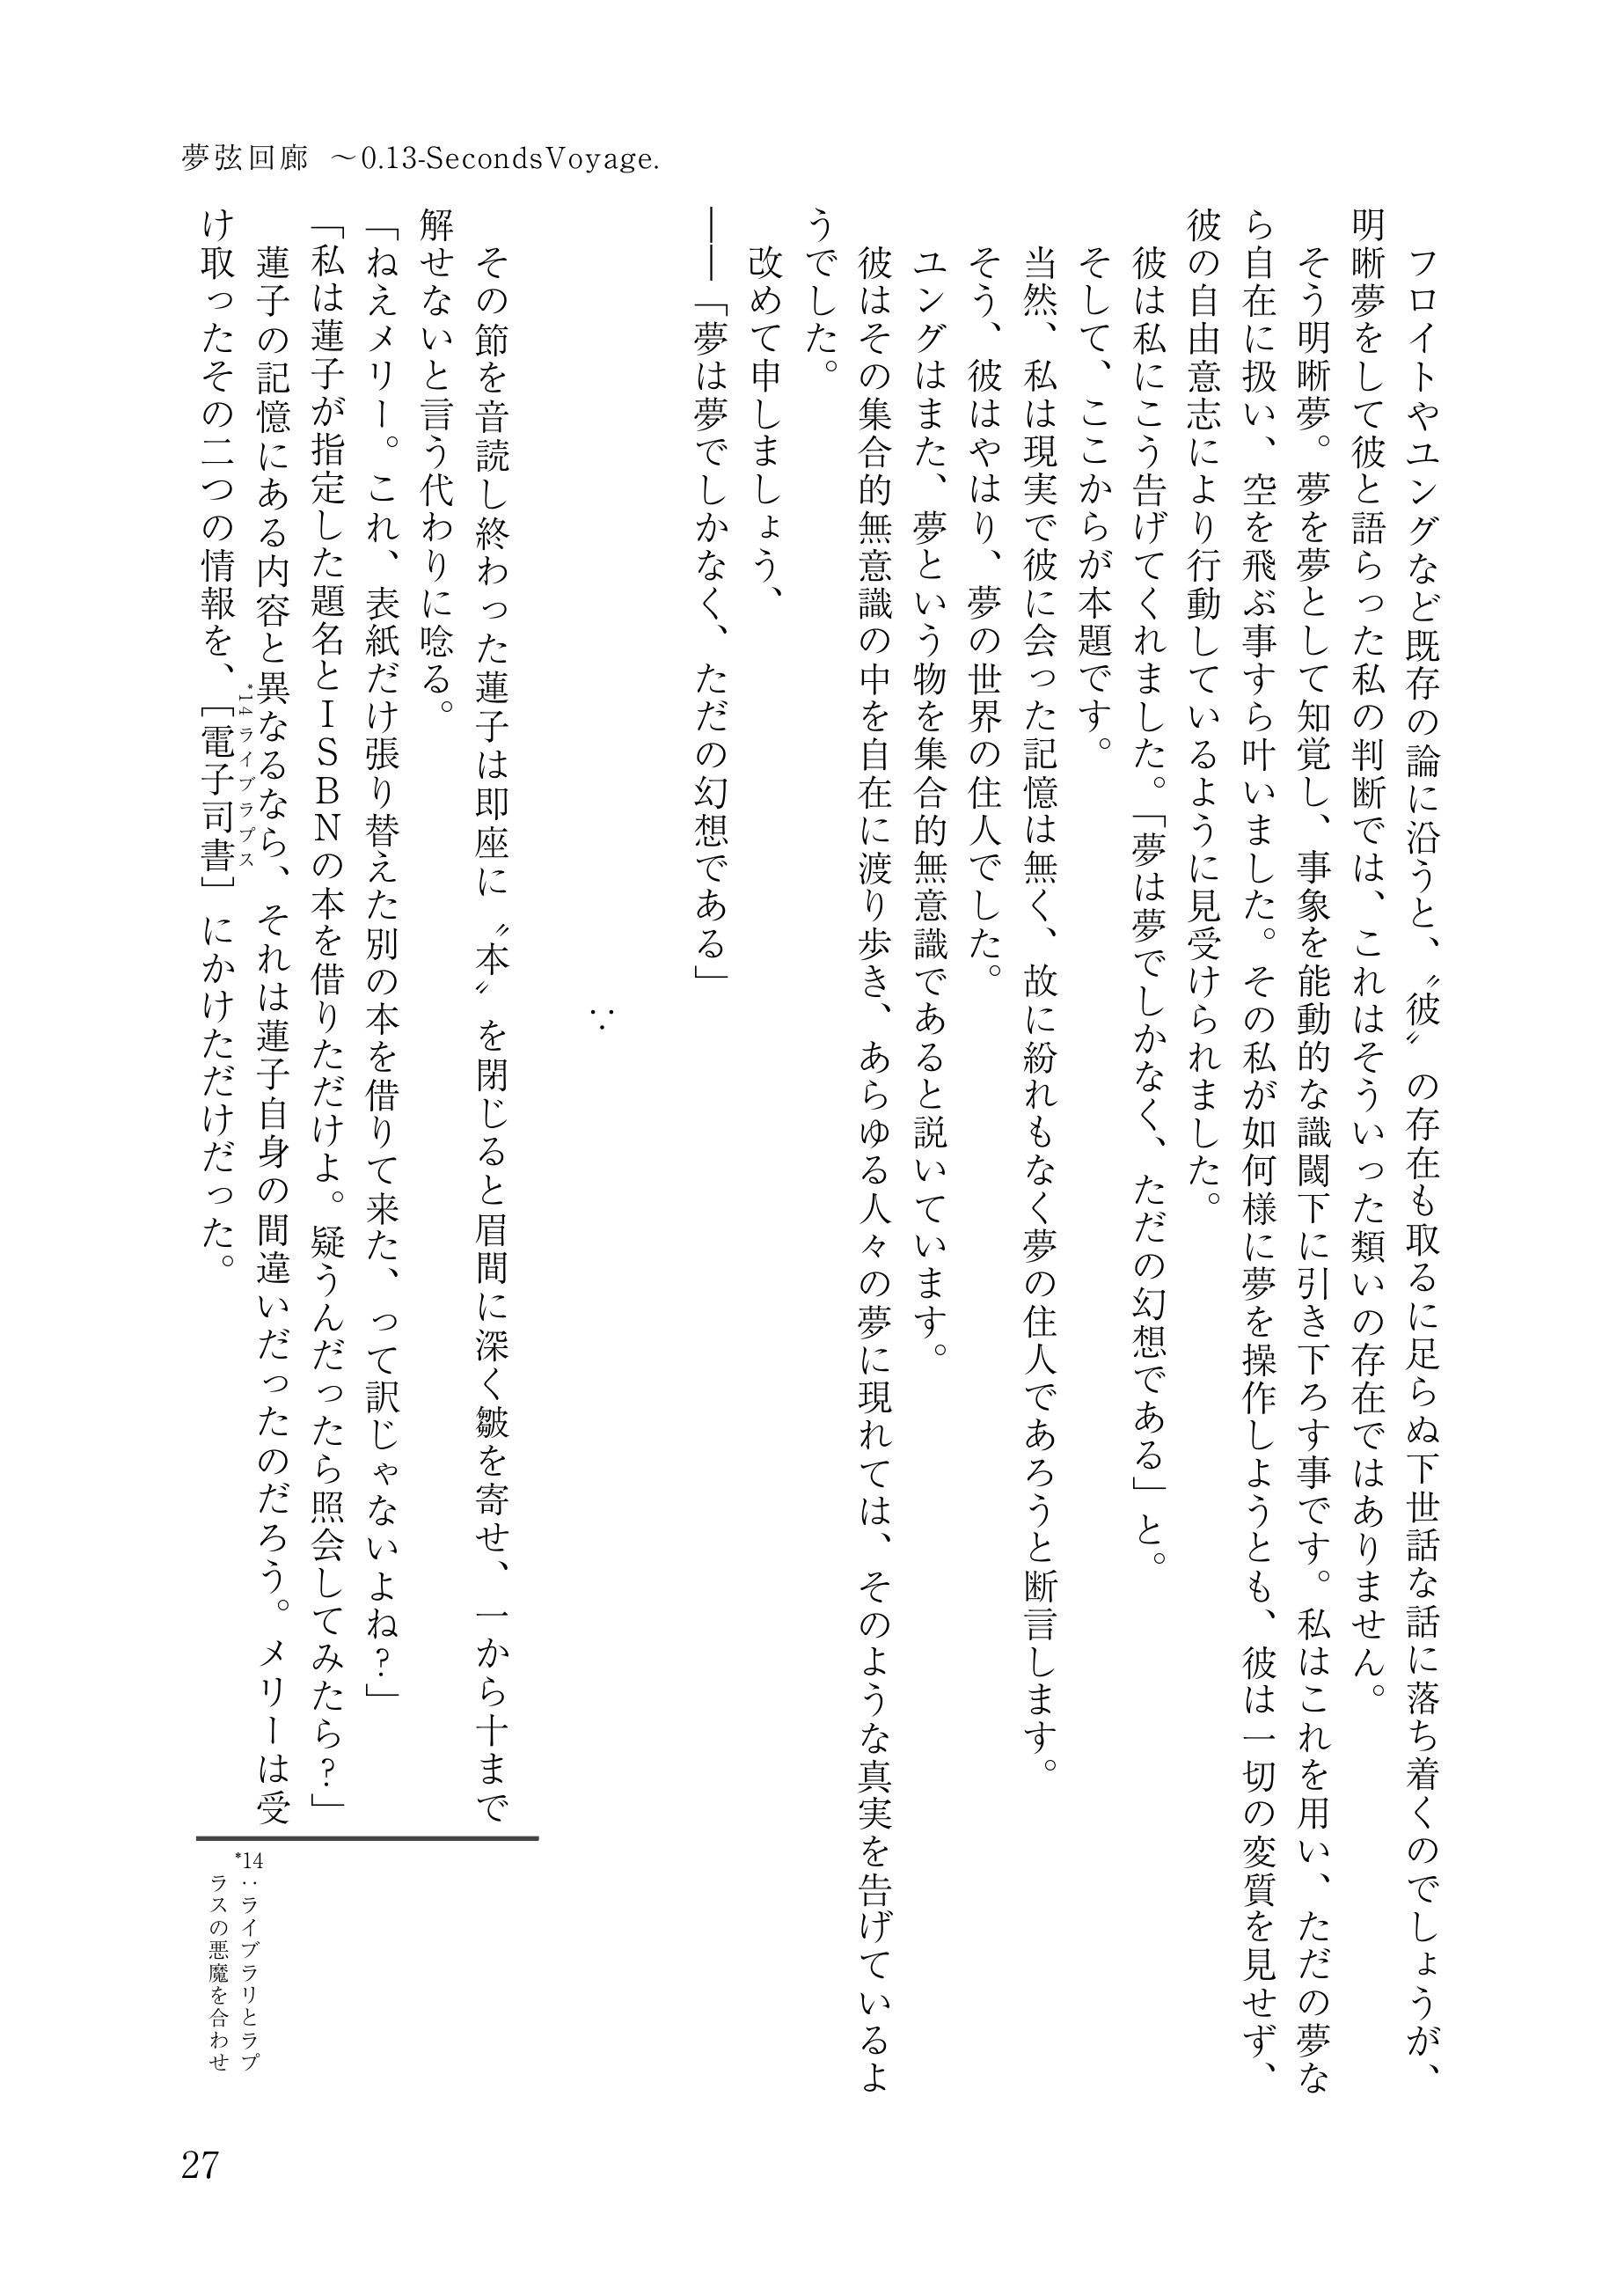 夢弦回廊 ～0.13-SecondsVoyage.
フロイトやユングなど既存の論に沿うと、〝彼〟の存在も取るに足らぬ下世話な話に落ち着くのでしょうが、
明晰夢をして彼と語らった私の判断では、これはそういった類いの存在ではありません。
そう明晰夢。夢を夢として知覚し、事象を能動的な識閾下に引き下ろす事です。私はこれを用い、ただの夢な
ら自在に扱い、空を飛ぶ事すら叶いました。その私が如何様に夢を操作しようとも、彼は一切の変質を見せず、
彼の自由意志により行動しているように見受けられました。
彼は私にこう告げてくれました。「夢は夢でしかなく、ただの幻想である」と。
そして、ここからが本題です。
当然、私は現実で彼に会った記憶は無く、故に紛れもなく夢の住人であろうと断言します。
そう、彼はやはり、夢の世界の住人でした。
ユングはまた、夢という物を集合的無意識であると説いています。
彼はその集合的無意識の中を自在に渡り歩き、あらゆる人々の夢に現れては、そのような真実を告げているよ
うでした。
改めて申しましょう、
――「夢は夢でしかなく、ただの幻想である」
∵
その節を音読し終わった蓮子は即座に〝本〟を閉じると眉間に深く皺を寄せ、一から十まで
解せないと言う代わりに唸る。
「ねえメリー。これ、表紙だけ張り替えた別の本を借りて来た、って訳じゃないよね？」
「私は蓮子が指定した題名とＩＳＢＮの本を借りただけよ。疑うんだったら照会してみたら？」
蓮子の記憶にある内容と異なるなら、それは蓮子自身の間違いだったのだろう。メリーは受
*14ライブラプス
け取ったその二つの情報を、「電子司書」にかけただけだった。
*14：ライブラリとラプ
ラスの悪魔を合わせ
27